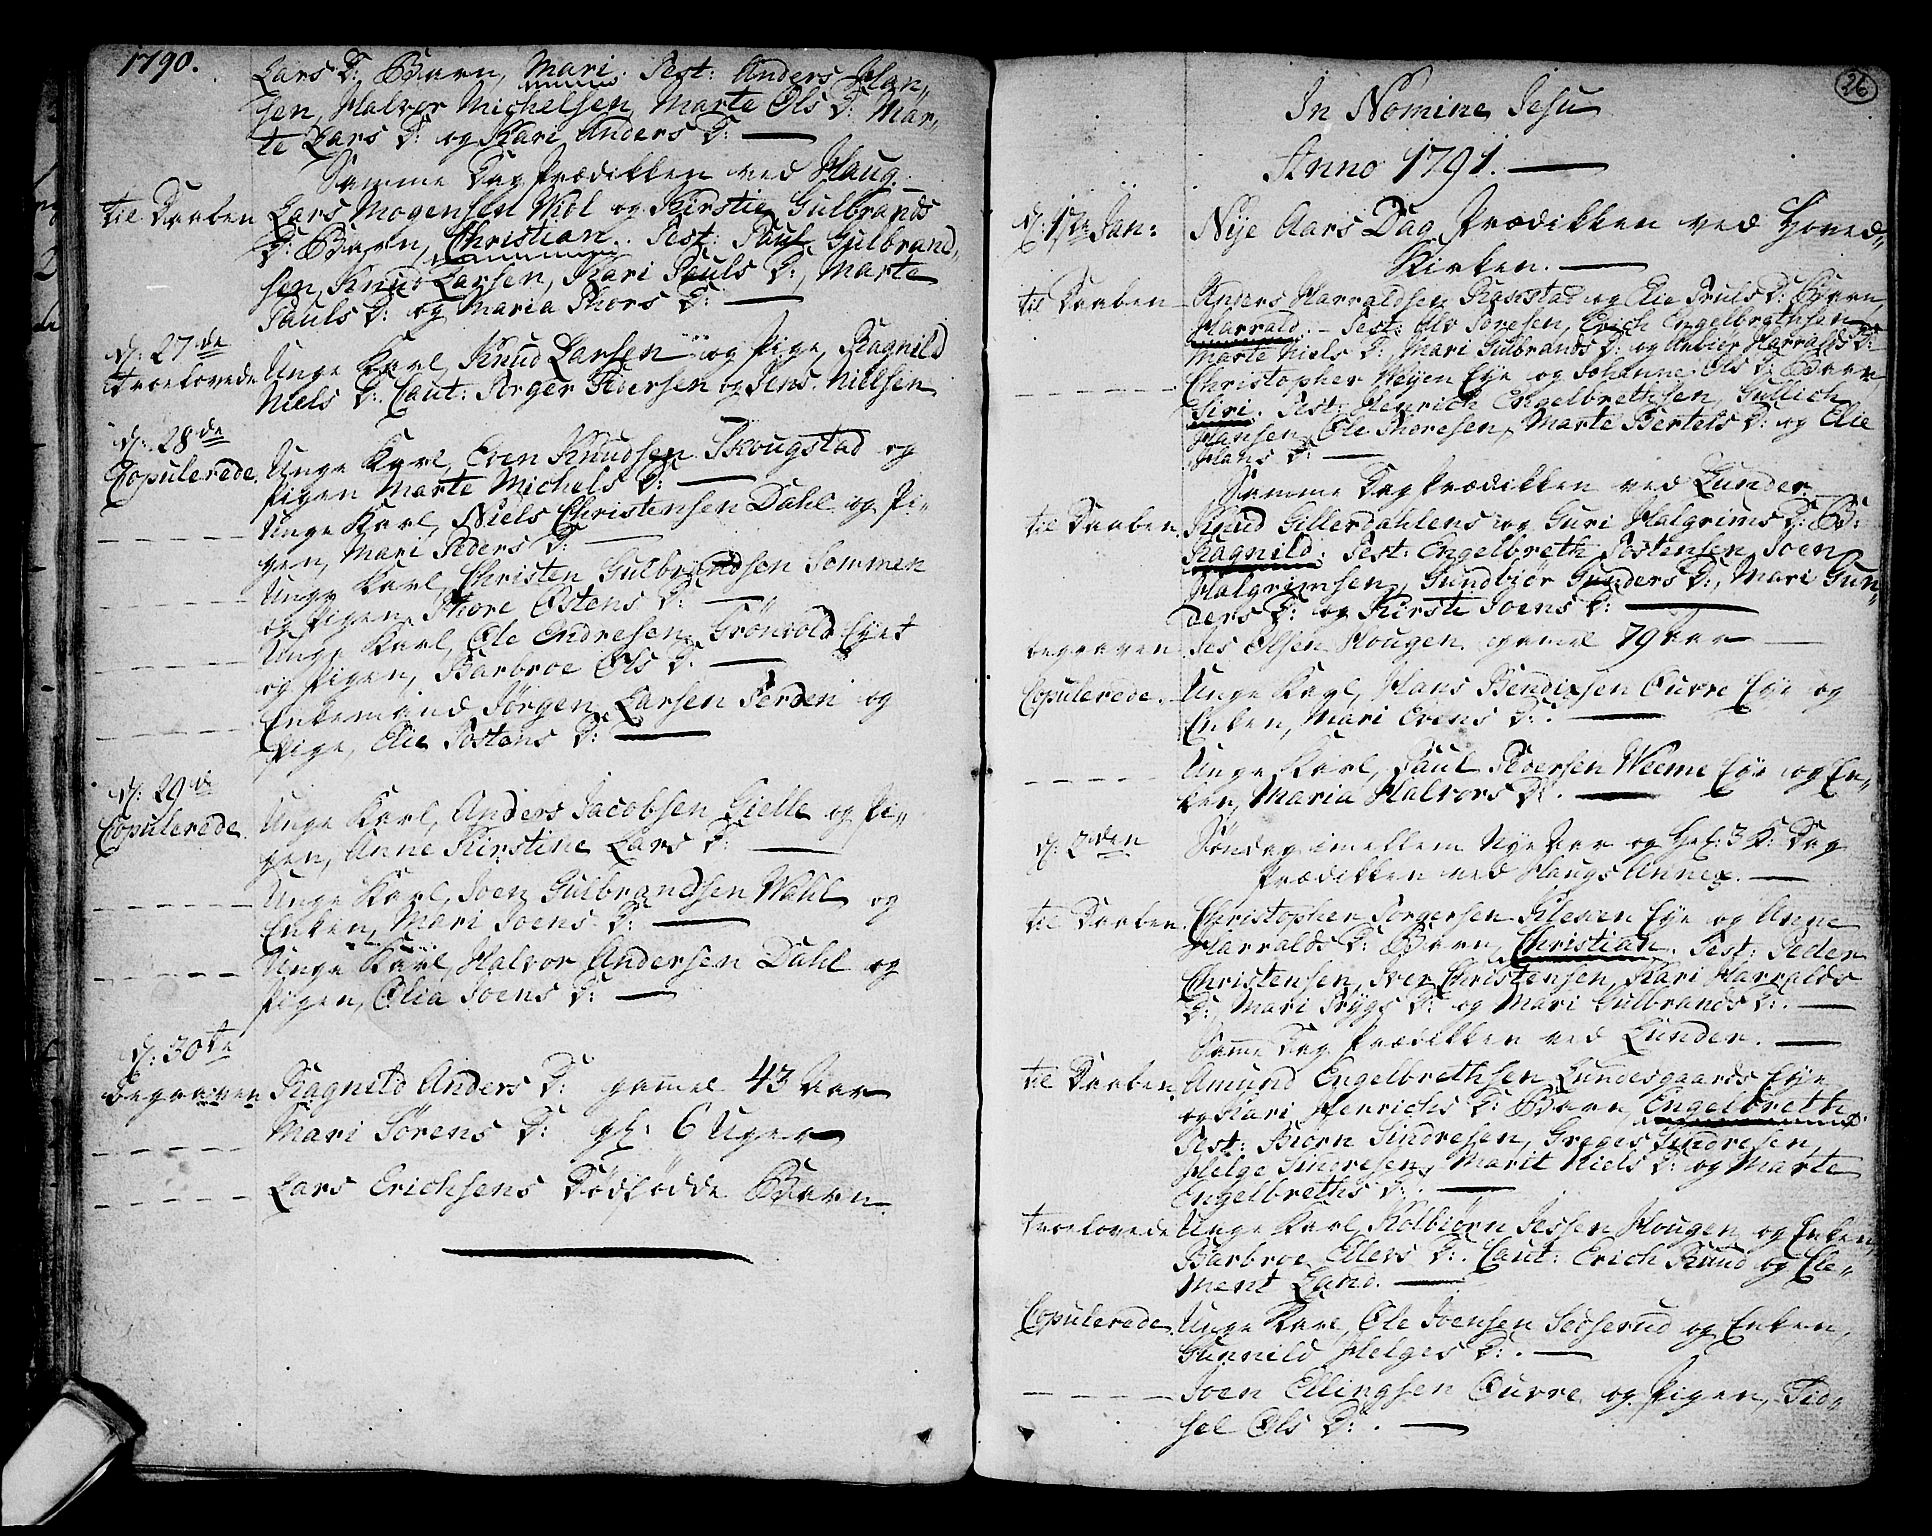 1790.
Lars D: Barn, Mari. Test: Anders Han„
sen, Halvor Michelsen, Marte Ols D: Mar„
te Lars D: og Kari Anders D:
Samme Dag Prædikken ved Haug.
til Daaben Lars Mogensen Wiol og Kirstie Gulbrands
D: Barn, Christian. Test: Paul Gulbrand„
sen, Knud Larsen, Kari Pauls D:, Marte
Pauls D: og Maria Thors D:
d: 27de
troelovede Unge Karl, Knud Larsen og Pige, Ragnild
Niels D: Caut: Torger Pedersen og Jens Nielsen
d: 28de
Copulerede. Unge Karl, Even Knudsen Skougstad og
Pigen Marte Michels D:
Unge Karl, Niels Christensen Dahl og Pi„
gen, Mari Peders D:
Unge Karl, Christen Gulbrandsen Sommen
og Pigen, Thore Ostens D:
Unge Karl, Ole Endresen Grönvold Eyet
og Pigen, Barbroe Ols D:
Enkemand Jörgen Larsen Ferden og
Pige, Elie Tostens D:
d: 29de
Copulerede. Unge Karl, Anders Jacobsen Gielle og Pi„
gen, Anne Kirstine Lars D:
Unge Karl, Joen Gulbrandsen Wahl og
Enken, Mari Joens D:
Unge Karl, Halvor Andersen Dahl og
Pigen, Olia Joens D:
d: 30te
Begraven Ragnild Anders D: gammel 43 Aar
Mari Sörens D: gl: 6 Uger
Lars Erichsens Dödfödde Barn
26
In Nomine Jesu
Anno 1791.
d: 1ste Jan: Nye Aars Dag Prædikken ved Hoved„
Kirken.
til Daaben Anders Harraldsen og Elie Pouls D: Barn,
Harrald. Test: Ole Toresen, Erich Engelbrethsen
Marte Niels D: Mari Gulbrands D: og Harralds D:
Christopher Weyen Eye og Johanne Ols D: Barn
Siri. Test: Henrich Engelbrethsen, Gullich
Hansen, Ole Thoresen, Marte Bertels D: og Elie
Hans D:
Samme Dag Prædikken ved Lunder.
til Daaben Knud Gillerdahlens og Guri Halgrims D: B:
Ragnild. Test: Engelbreth Tostensen, Joen
Halgrimsen, Gundbiör Gunders D:, Mari Gun„
ders D: og Kirsti Joens D:
begraven Jes Olsen Hougen gamel 79 Aar
Copulerede. Unge Karl, Hans Bendixsen Ouvre Eye og
Enken, Mari Evens D:.
Unge Karl, Paul Pedersen Weeme Eye og En„
ken, Maria Halvors D:.
d: 2den Söndag imellem Nye Aar og Hel: 3 K: Dag
Prædikken ved Haugs Annex.
til Daaben. Christopher Torgersen Kleven Eye og Anne
Harralds D: Barn, Christian. Test: Peder
Christensen, Iver Christensen, Kari Harralds
D:, Mari Trygs D: og Mari Gulbrands D:.
Samme Dag Prædikken ved Lunder.
til Daaben. Amund Engelbrethsen Lundesgaards Eye
og Kari Henrichs D: Barn, Engelbreth.
Test: Biorn Sindresen, Greges Sindresen,
Helge Sindresen, Marit Niels D: og Marte
Engelbreths D:.
troelovede Unge Karl, Kolbiörn Jessen Hougen og Enken,
Barbroe Ellers D:. Caut: Erich Ruud og Cle„
ment Land.
Copulerede. Unge Karl, Ole Joensen Sedserud og Enken,
Gunnild Helges D:.
Joen Ellingsen Ouvre og Pigen, Sid„
sel Ols D:.